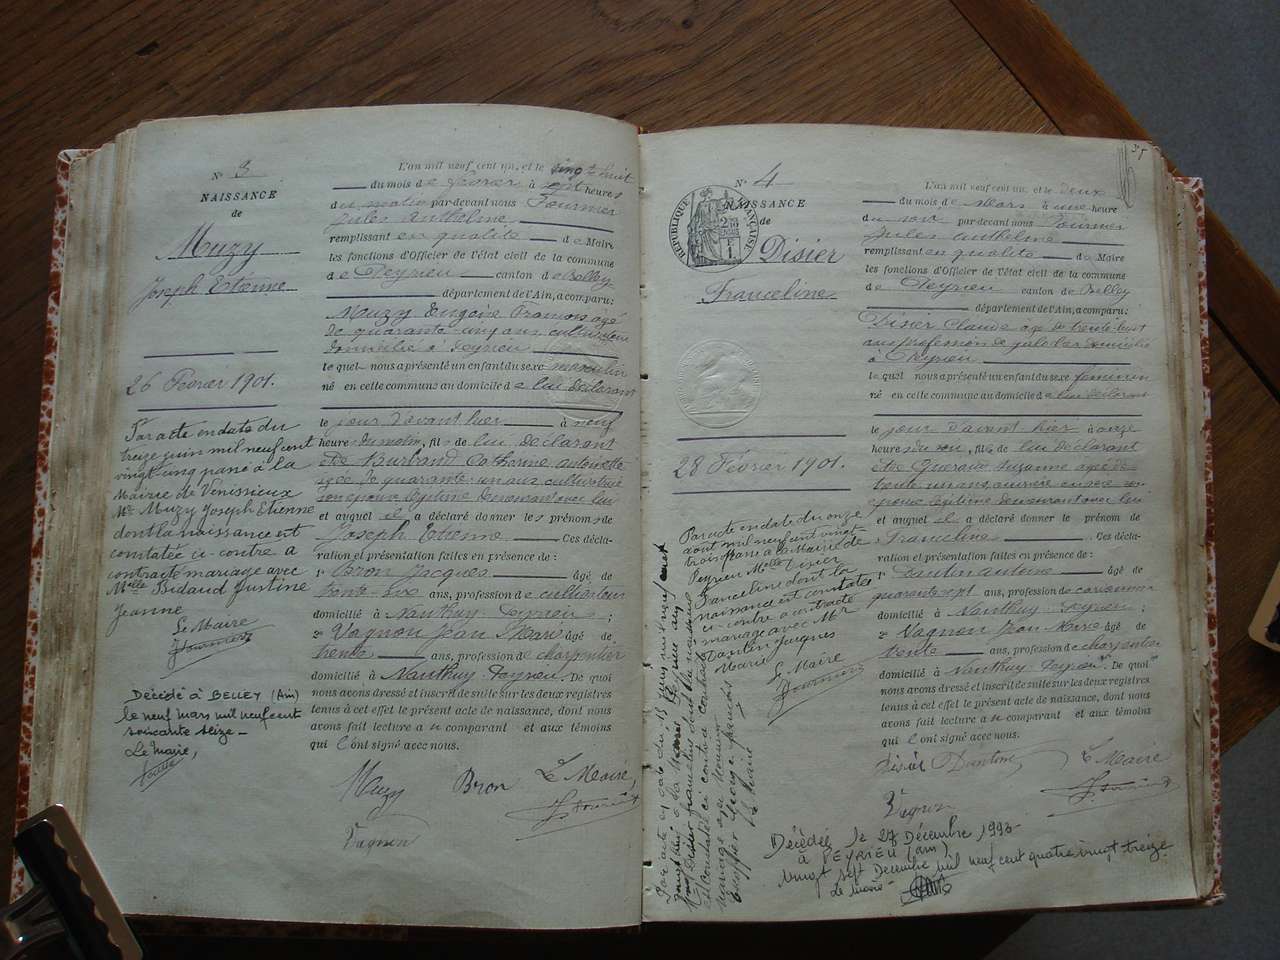 N° 3
NAISSANCE
de
Muzy
Joseph Etienne
26 Février 1901.
Par acte en date du
treize juin mil neuf cent
vingt-cinq passé à la
Mairie de Venissieux
Mr Muzy Joseph Etienne
dont la naissance est
constatée ci-contre a
contracté mariage avec
Melle Bidaud Justine
Jeanne
Le Maire
JFournier
Décédé à BELLEY (Ain)
le neuf mars mil neuf cent
soixante seize -
Le Maire,
L'an mil neuf cent un, et le vingt huit
du mois de février à sept heures
du matin par devant nous Fournier
Jules Anthelme
remplissant en qualité de Maire
les fonctions d'Officier de l'état civil de la commune
de Peyrieu canton de Belley
département de l'Ain, a comparu:
Muzy François âgé
de quarante-un ans, cultivateur
domicilié à Peyrieu
lequel nous a présenté un enfant du sexe masculin
né en cette commune au domicile de lui déclarant
le jour d'avant hier à neuf
heures du matin, fils de lui déclarant
et de Burbaud Catherine Antoinette
âgée de quarante-un ans cultivatrice
son épouse légitime demeurant avec lui
et auquel il a déclaré donner les prénoms de
Joseph Etienne Ces décla-
ration et présentation faites en présence de:
1° Bron Jacques âgé de
trente-six ans, profession de cultivateur
domicilié à Nanthuy-Peyrieu;
2° Vagnon Jean Marie âgé de
trente ans, profession de charpentier
domicilié à Nanthuy Peyrieu. De quoi
nous avons dressé et inscrit de suite sur les deux registres
tenus à cet effet le présent acte de naissance, dont nous
avons fait lecture au comparant et aux témoins
qui l'ont signé avec nous.
Muzy Bron Le Maire,
JFournier
Vagnon
N° 4
NAISSANCE
de
RÉPUBLIQUE FRANÇAISE
Disier
Franceline
28 Février 1901.
Par acte en date du onze
août mil neuf cent vingt
trois passé à la Mairie de
Peyrieu Melle Disier
Franceline dont la
naissance est constatée
ci-contre a contracté
mariage avec Mr
Dantin Jacques
Marie
Le Maire
JFournier
Par acte en date du 18 juin mil neuf cent
est constatée ci-contre a contracté
mariage avec Monsieur
Escoffier Georges François
Le Maire
L'an mil neuf cent un, et le deux
du mois de Mars à une heure
du soir par devant nous Fournier
Jules Anthelme
remplissant en qualité de Maire
les fonctions d'Officier de l'état civil de la commune
de Peyrieu canton de Belley
département de l'Ain, a comparu:
Disier Claude âgé de trente-huit
ans profession de domicilié
à Peyrieu
lequel nous a présenté un enfant du sexe féminin
né en cette commune au domicile de lui déclarant
le jour d'avant hier à onze
heures du soir, fille de lui déclarant
et de Suzanne âgée de
trente un ans, son
épouse légitime demeurant avec lui
et auquel il a déclaré donner le prénom de
Franceline Ces décla-
ration et présentation faites en présence de:
1° Dantin Antoine âgé de
quarante sept ans, profession de
domicilié à Nanthuy-Peyrieu;
2° Vagnon Jean Marie âgé de
trente ans, profession de charpentier
domicilié à Nanthuy-Peyrieu. De quoi
nous avons dressé et inscrit de suite sur les deux registres
tenus à cet effet le présent acte de naissance, dont nous
avons fait lecture au comparant et aux témoins
qui l'ont signé avec nous.
Disier Dantin Le Maire
JFournier
Vagnon
Décédée le 27 Décembre 1993
à PEYRIEU (Ain)
vingt sept Décembre mil neuf cent quatre vingt treize.
Le Maire